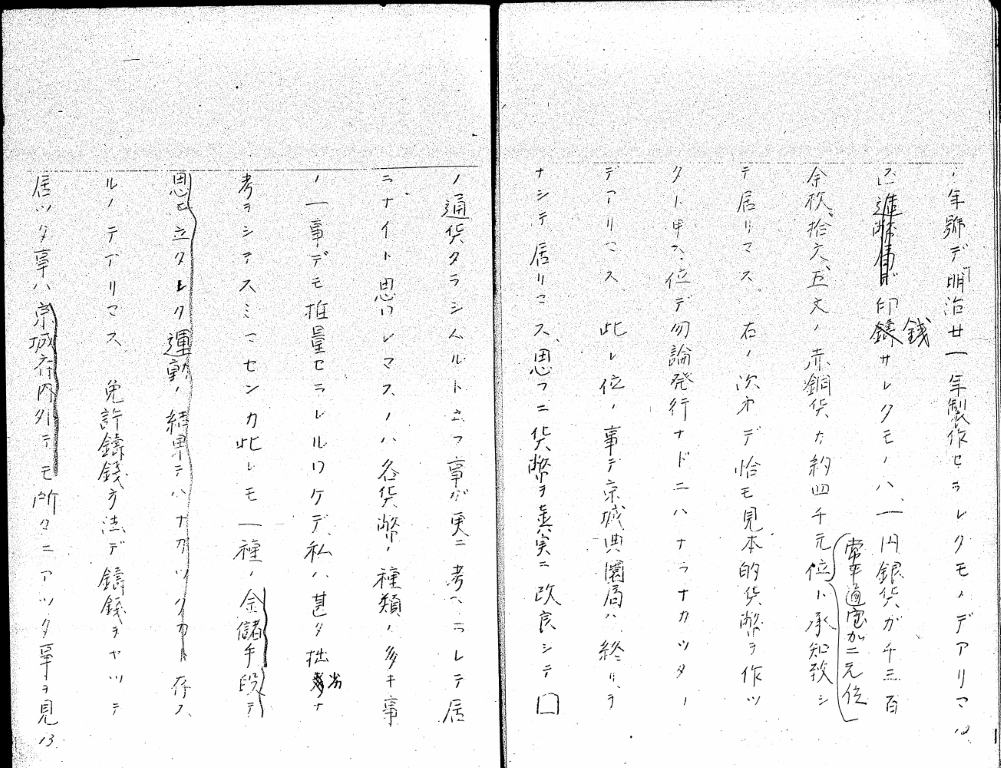 ノ年號デ「明治廿一年製作セラレタモノデアリマ
ス進幣局ガ印鑄サレタモノハ、一円銀貨ガ千三百
銭
余枚、拾文五文ノ赤銅貨カ約四千元位ト承知致シ
(常平通宝が二元位)
テ居リマス 右ノ次オデ恰モ見本的貨幣ヲ作ツ
タト申ス位デ勿論発行ナドニハナラナカツタノ
デアリマス 此レ位ノ事デ京城典圜局ハ終リヲ
ナシテ居リマス思フニ貨幣ヲ眞実ニ改良シテ□
12
ノ通貨タラシムルト云フ事ガ更ニ考ヘラレテ居
ラナイト思ワレマスノハ各貨幣ノ種類ノ多キ事
ノ一事デモ推量セラレルワケデ私ハ甚タ拙劣ナ
考ヲシアスミマセンカ此レモ一種ノ金儲手段デ
思ヒ立タレタ運動ノ結果デハナカツタカト存ス
ルノデアリマス 免許鑄錢方法デ鑄錢ヲヤツテ
居ツタ事ハ京城府内外デモ所々ニアツタ事ヲ見
13